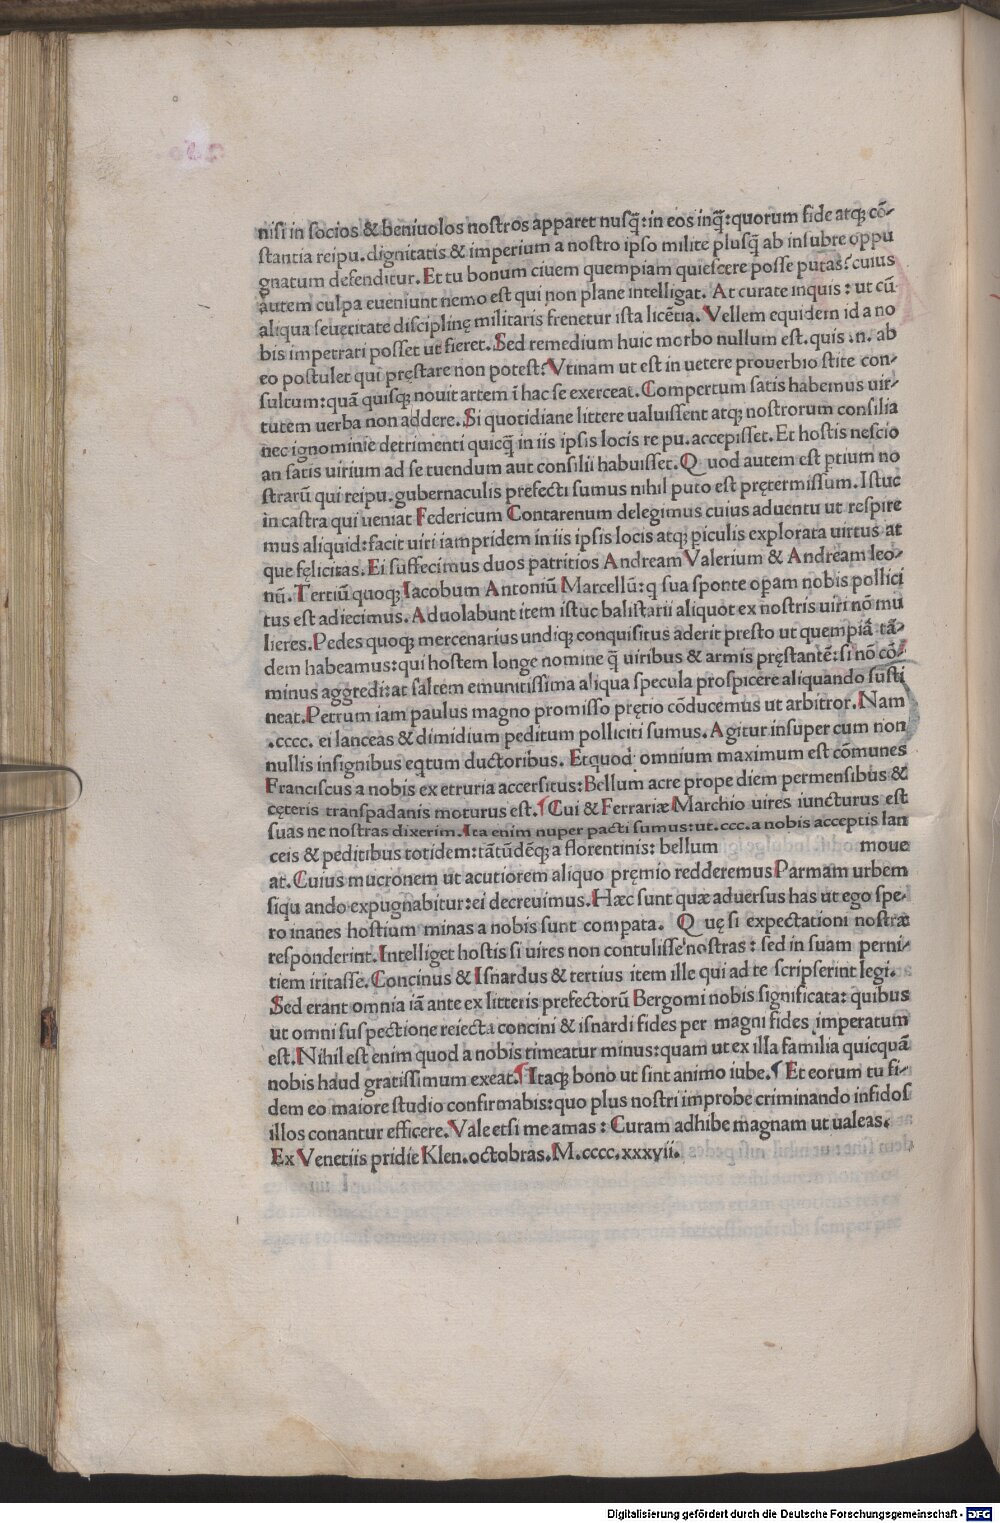 nisi in socios & beniuolos nostros apparet nusq̃: in eos inq̃: quorum fide atq; cō-
stantia reipu. dignitatis & imperium a nostro ipso milite plusq̃ ab insubre oppu
gnatum defenditur. Et tu bonum ciuem quempiam quiescere posse putas? cuius
autem culpa eueniunt nemo est qui non plane intelligat. At curate inquis: ut cū
aliqua seueritate disciplinę militaris frenetur ista licētia. Vellem equidem id a no
bis impetrari posset ut fieret. Sed remedium huic morbo nullum est. quis .n. ab
eo postulet qui pręstare non potest? Vtinam ut est in uetere prouerbio stite con-
sultum: quā quisq; nouit artem ī hac se exerceat. Compertum satis habemus uir-
tutem uerba non addere. Si quotidiane littere ualuissent atq; nostrorum consilia
nec ignominie detrimenti quicq̃ in iis ipsis locis re pu. accepisset. Et hostis nescio
an satis uirium ad se tuendum aut consilii habuisset. Q uod autem est ptium no
strarū qui reipu. gubernaculis prefecti sumus nihil puto est prętermissum. Istuc
in castra qui ueniat Federicum Contarenum delegimus cuius aduentu ut respire
mus aliquid: facit uiri iampridem in iis ipsis locis atq; piculis explorata uirtus at
que fęlicitas. Ei suffecimus duos patritios Andream Valerium & Andream leo-
nū. Tertiū quoq; Iacobum Antoniū Marcellū: q sua sponte opam nobis pollici
tus est adiecimus. Aduolabunt item istuc balistarii aliquot ex nostris uiri nō mu
lieres. Pedes quoq; mercenarius undiq; conquisitus aderit presto ut quempiā tā-
dem habeamus: qui hostem longe nomine q̃ uiribus & armis pręstantē: si nō cō-
minus aggredi: at saltem emunitissima aliqua specula prospicere aliquando susti
neat. Petrum iam paulus magno promisso prętio cōducemus ut arbitror. Nam
.cccc. ei lanceas & dimidium peditum polliciti sumus. Agitur insuper cum non
nullis insignibus eqtum ductoribus. Etquod omnium maximum est cōmunes
Franciscus a nobis ex etruria accersitus: Bellum acre prope diem permensibus &
cęteris transpadanis moturus est. ¶ Cui & Ferrariæ Marchio uires iuncturus est
suas ne nostras dixerim. Ita enim nuper pacti sumus: ut. ccc. a nobis acceptis lan
ceis & peditibus totidem: tātūdēq; a florentinis: bellum moue
at. Cuius mucronem ut acutiorem aliquo pręmio redderemus Parmam urbem
siqu ando expugnabitur: ei decreuimus. Hæc sunt quæ aduersus has ut ego spe-
ro inanes hostium minas a nobis sunt compata. Q uę si expectationi nostræ
responderint. Intelliget hostis si uires non contulisse nostras: sed in suam perni-
tiem iritasse. Concinus & Isnardus & tertius item ille qui ad te scripserint legi.
Sed erant omnia iā ante ex litteris prefectorū Bergomi nobis significata: quibus
ut omni suspectione reiecta concini & isnardi fides per magni fides imperatum
est. Nihil est enim quod a nobis timeatur minus: quam ut ex illa familia quicquā
nobis haud gratissimum exeat. ¶ Itaq; bono ut sint animo iube. ¶ Et eorum tu fi-
dem eo maiore studio confirmabis: quo plus nostri improbe criminando infidos
illos conantur efficere. Vale etsi me amas: Curam adhibe magnam ut ualeas.
Ex Venetiis pridie Klen. octobras. M. cccc. xxxvii.
Digitalisierung gefördert durch die Deutsche Forschungsgemeinschaft - DFG